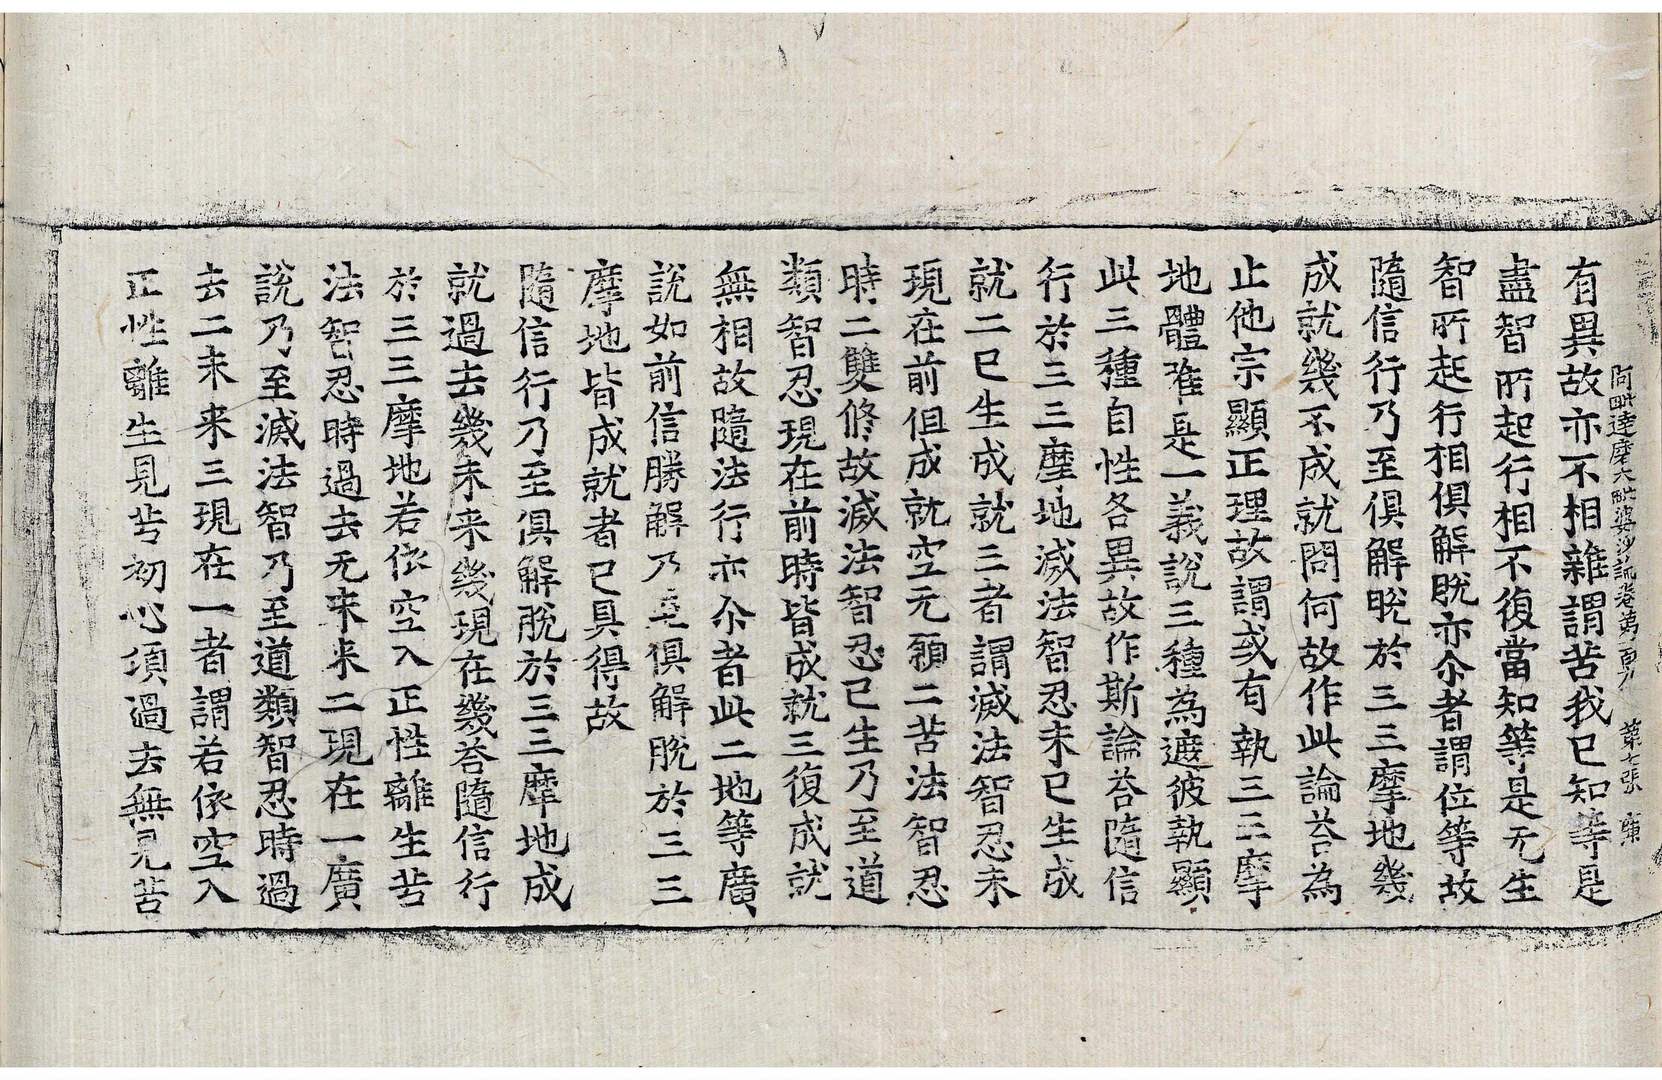 阿毗達磨大毗婆沙論卷第百八　第七張　東
有異故亦不相雜謂苦我已知等是
盡智所起行相不復當知等是无生
智所起行相俱解脫亦尒者謂位等故
隨信行乃至俱解脫於三三摩地幾
成就幾不成就問何故作此論荅為
止他宗顯正理故謂或有執三三摩
地體唯是一義說三種為遮彼執顯
此三種自性各異故作斯論荅隨信
行於三三摩地滅法智忍未已生成
就二已生成就三者謂滅法智忍未
現在前但成就空无願二苦法智忍
時二雙修故滅法智忍已生乃至道
類智忍現在前時皆成就三復成就
無相故隨法行亦尒者此二地等廣
說如前信勝解乃至俱解脫於三三
摩地皆成就者已具得故
隨信行乃至俱解脫於三三摩地成
就過去幾未来幾現在幾荅隨信行
於三三摩地若依空入正性離生苦
法智忍時過去无未来二現在一廣
說乃至滅法智乃至道類智忍時過
去二未来三現在一者謂若依空入
正性離生見苦初心須過去無見苦